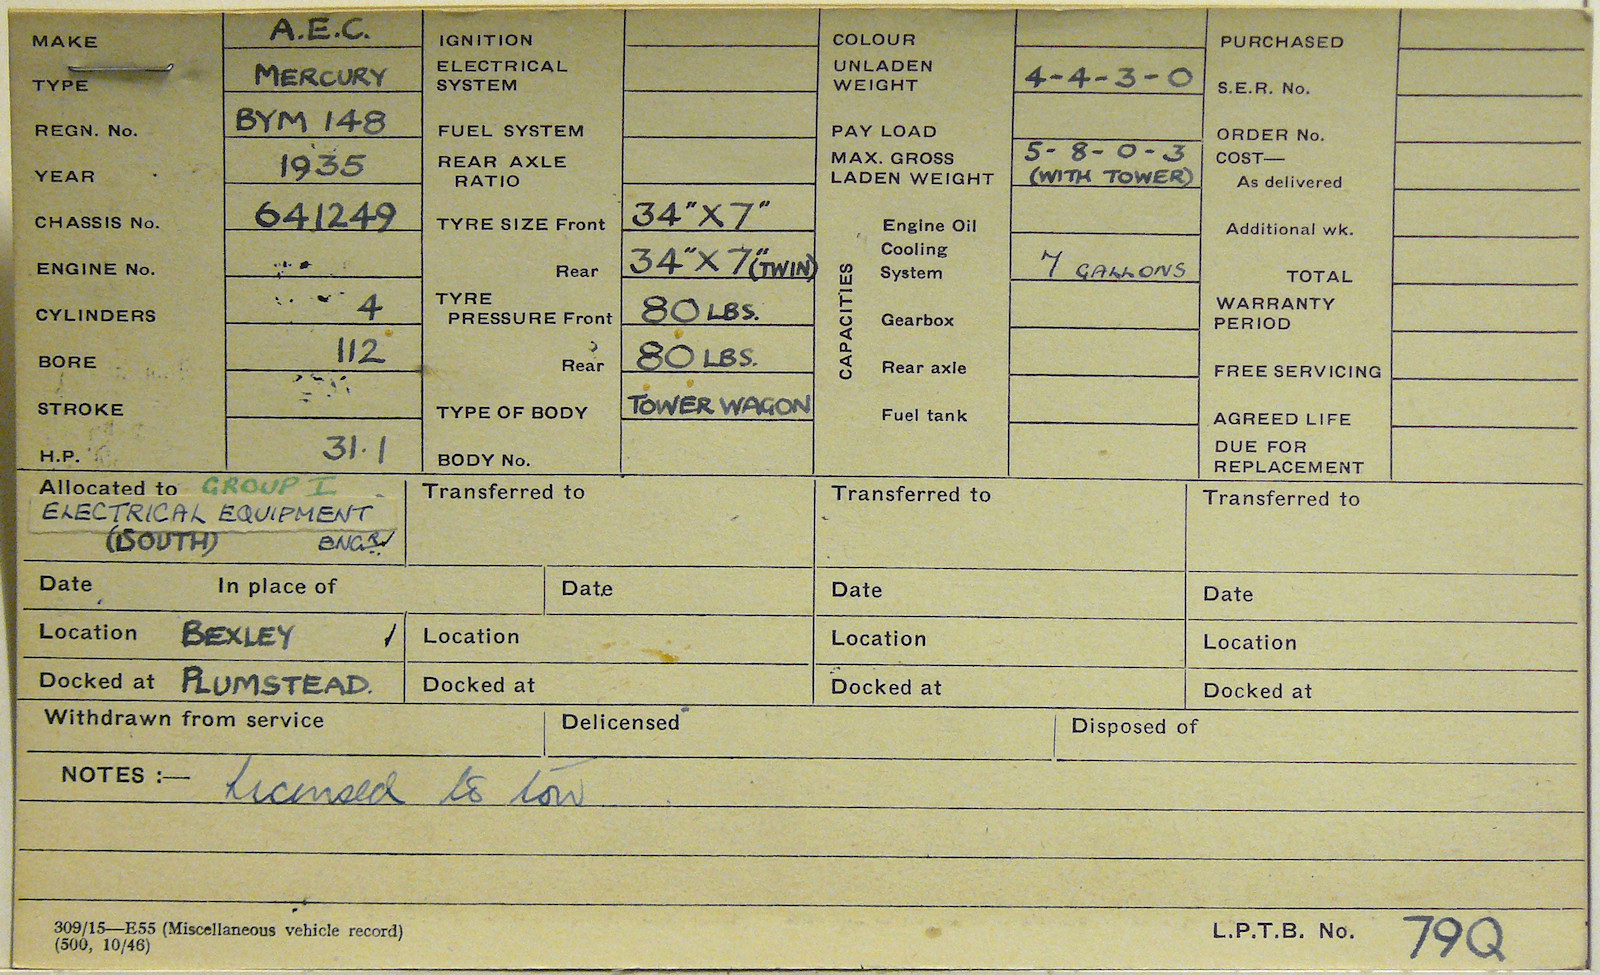 MAKE A.E.C. IGNITION COLOUR PURCHASED
TYPE MERCURY ELECTRICAL SYSTEM UNLADEN WEIGHT 4-4-3-0 S.E.R. No.
REGN. No. BYM 148 FUEL SYSTEM PAY LOAD ORDER No.
YEAR 1935 REAR AXLE RATIO MAX. GROSS LADEN WEIGHT 5-8-0-3 (WITH TOWER) COST— As delivered
CHASSIS No. 641249 TYRE SIZE Front 34"X7" Engine Oil Additional wk.
ENGINE No. Rear 34"X7"(TWIN) CAPACITIES Cooling System 7 GALLONS TOTAL
CYLINDERS 4 TYRE PRESSURE Front 80 LBS. Gearbox WARRANTY PERIOD
BORE 112 Rear 80 LBS. Rear axle FREE SERVICING
STROKE TYPE OF BODY TOWER WAGON Fuel tank AGREED LIFE
H.P. 31.1 BODY No. DUE FOR REPLACEMENT
Allocated to GROUP I Transferred to Transferred to Transferred to
ELECTRICAL EQUIPMENT
(SOUTH) ENGR
Date In place of Date Date Date
Location BEXLEY Location Location Location
Docked at PLUMSTEAD. Docked at Docked at Docked at
Withdrawn from service Delicensed Disposed of
NOTES :— Licensed to tow
309/15—E55 (Miscellaneous vehicle record)
(500, 10/46)
L.P.T.B. No. 79Q